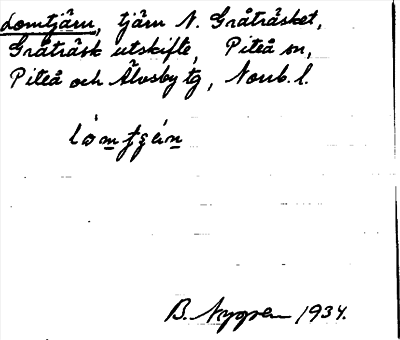 Lomtjärn, tjärn N. Gråträsket,
Gråträsk utskifte, Piteå sn,
Piteå och Älvsby tg, Norrb. l.
B. Nygren 1934.